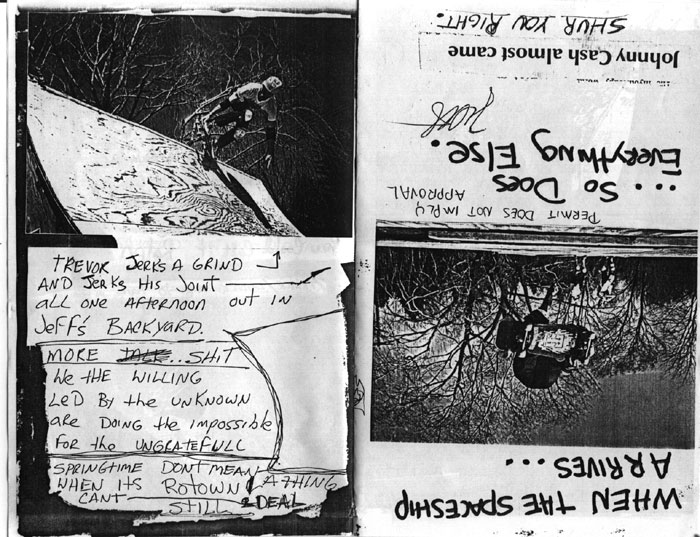 TREVOR JERKS A GRIND
AND JERKS HIS JOINT
all ONE AFTERNOON OUT IN
JEFF'S BACKYARD.
MORE ... SHIT
WE THE WILLING
LED BY the UNKNOWN
are DOING the impossible
FOR the UNGRATEFULL
SPRINGTIME DON'T MEAN
A THING
WHEN ITS ROTOWN
CANT
STILL DEAL
WHEN THE SPACESHIP
ARRIVES...
PERMIT DOES NOT IMPLY
APPROVAL
... SO DOES
EVERYTHING ELSE.
Johnny Cash almost came
SHUR YOU RIGHT.